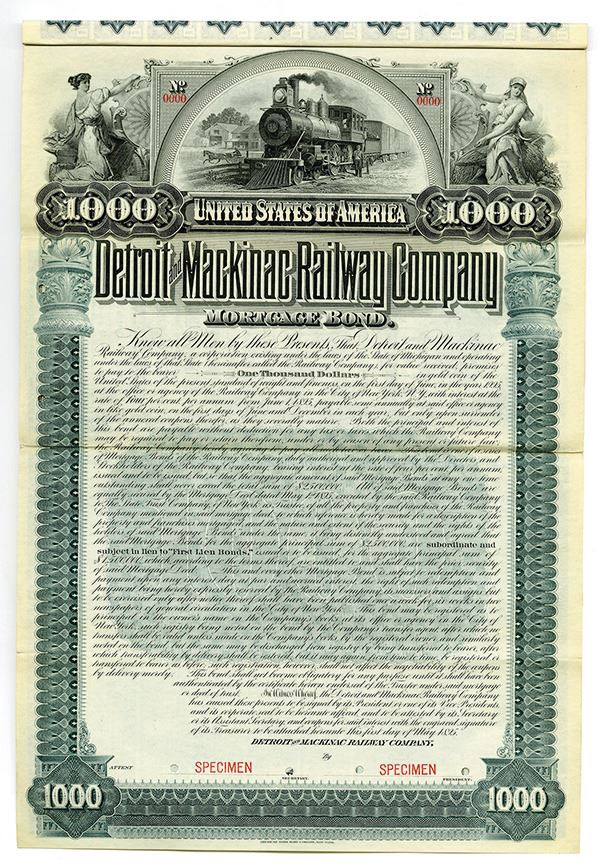 No
0000
No
0000
1.000
UNITED STATES OF AMERICA
1.000
Detroit and Mackinac Railway Company
MORTGAGE BOND.
Know all Men by these Presents, That Detroit and Mackinac
Railway Company, a corporation existing under the laws of the State of Michigan and operating
under the laws of that State (hereinafter called the Railway Company), for value received, promises
to pay to the bearer One Thousand Dollars in gold coin of the
United States of the present standard of weight and fineness, on the first day of June, in the year 1995,
at the office or agency of the Railway Company, in the City of New York, N.Y., with interest at the
rate of four per cent per annum from June 1, 1895, payable semi-annually at such office or agency
in like gold coin, on the first days of June and December in each year, but only upon surrender
of the annexed coupons therefor, as they severally mature. Both the principal and interest of
this bond are payable without deduction for any tax or taxes, which the Railway Company
may be required to pay or retain therefrom, under or by reason of any present or future law,
Stockholders of the Railway Company, bearing interest at the rate of four per cent per annum
issued and to be issued, but so that the aggregate amount of said Mortgage Bonds at any one time
outstanding shall never exceed the total sum of said Mortgage Bonds are
equally secured by the Mortgage Deed dated May 1, 1895, executed by the said Railway Company
to The State Trust Company, of New York, as Trustee, of all the property and franchises of the Railway
Company mentioned in said mortgage deed, to which reference is hereby made for a description of the
property and franchises mortgaged, and the nature and extent of the security and the rights of the
holders of said Mortgage Bonds under the same, it being distinctly understood and agreed that
the said Mortgage Bonds, for the aggregate principal sum of are subordinate and
subject in lien to "First Lien Bonds," issued or to be issued, for the aggregate principal sum of
which, according to the terms thereof, are entitled to and shall have the prior security
of said Mortgage Deed. This and every other Mortgage Bond is subject to redemption and
payment upon any interest day at par and accrued interest, the right of such redemption and
payment being hereby expressly reserved by the Railway Company, its successors and assigns, but
to be exercised only after notice thereof shall have been published once a week for six weeks in two
newspapers of general circulation in the City of New York. This bond may be registered as to
principal, in the owner's name on the Company's books at its office or agency in the City of
New York, such registry being noted on the bond by the Company's transfer agent, after which no
transfer shall be valid unless made on the Company's books by the registered owner, and similarly
noted on the bond; but the same may be discharged from registry by being transferred to bearer, after
which transferability by delivery shall be restored, but it may again, from time to time, be registered or
transferred to bearer as before; such registration, however, shall not affect the negotiability of the coupons
by delivery merely. This bond shall not become obligatory for any purpose until it shall have been
authenticated by the certificate hereon endorsed of the Trustee under said mortgage
or deed of trust. In Witness Whereof, the Detroit and Mackinac Railway Company
has caused these presents to be signed by its President or one of its Vice Presidents,
and its corporate seal to be hereunto affixed, and to be attested by its Secretary
or its Assistant Secretary, and coupons for said interest with the engraved signature
of its Treasurer to be attached hereunto this first day of May 1895.
DETROIT AND MACKINAC RAILWAY COMPANY,
By
ATTEST
SPECIMEN
SPECIMEN
SECRETARY.
PRESIDENT.
1000
1000